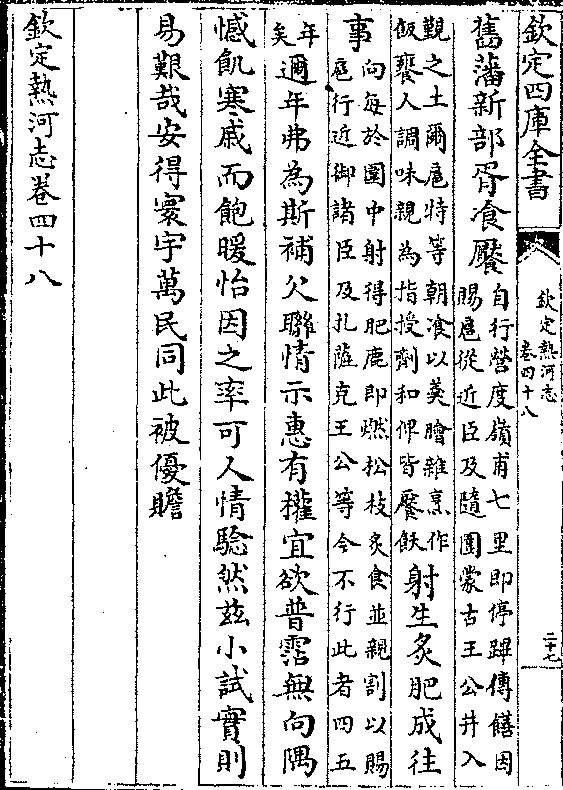 欽定四庫全書
欽定熱河志
卷四十八
二十七
舊藩新部胥飡饜自行營度嶺甫七里即停蹕傳饍因
賜扈從近臣及隨圍蒙古王公并入
覲之土爾扈特等朝飡以羙膾雜烹作
飯饔人調味親為指授劑和俾皆饜飫射生炙肥成往
事向每於圍中射得肥鹿即燃松枝炙食並親割以賜
扈行近御諸臣及扎薩克王公等今不行此者四五
年
矣邇年弗為斯補欠聯情示惠有權宜欲普霑無向隅
憾飢寒戚而飽暖怡因之率可人情騐然茲小試實則
易艱哉安得寰宇萬民同此被優贍
欽定熱河志卷四十八